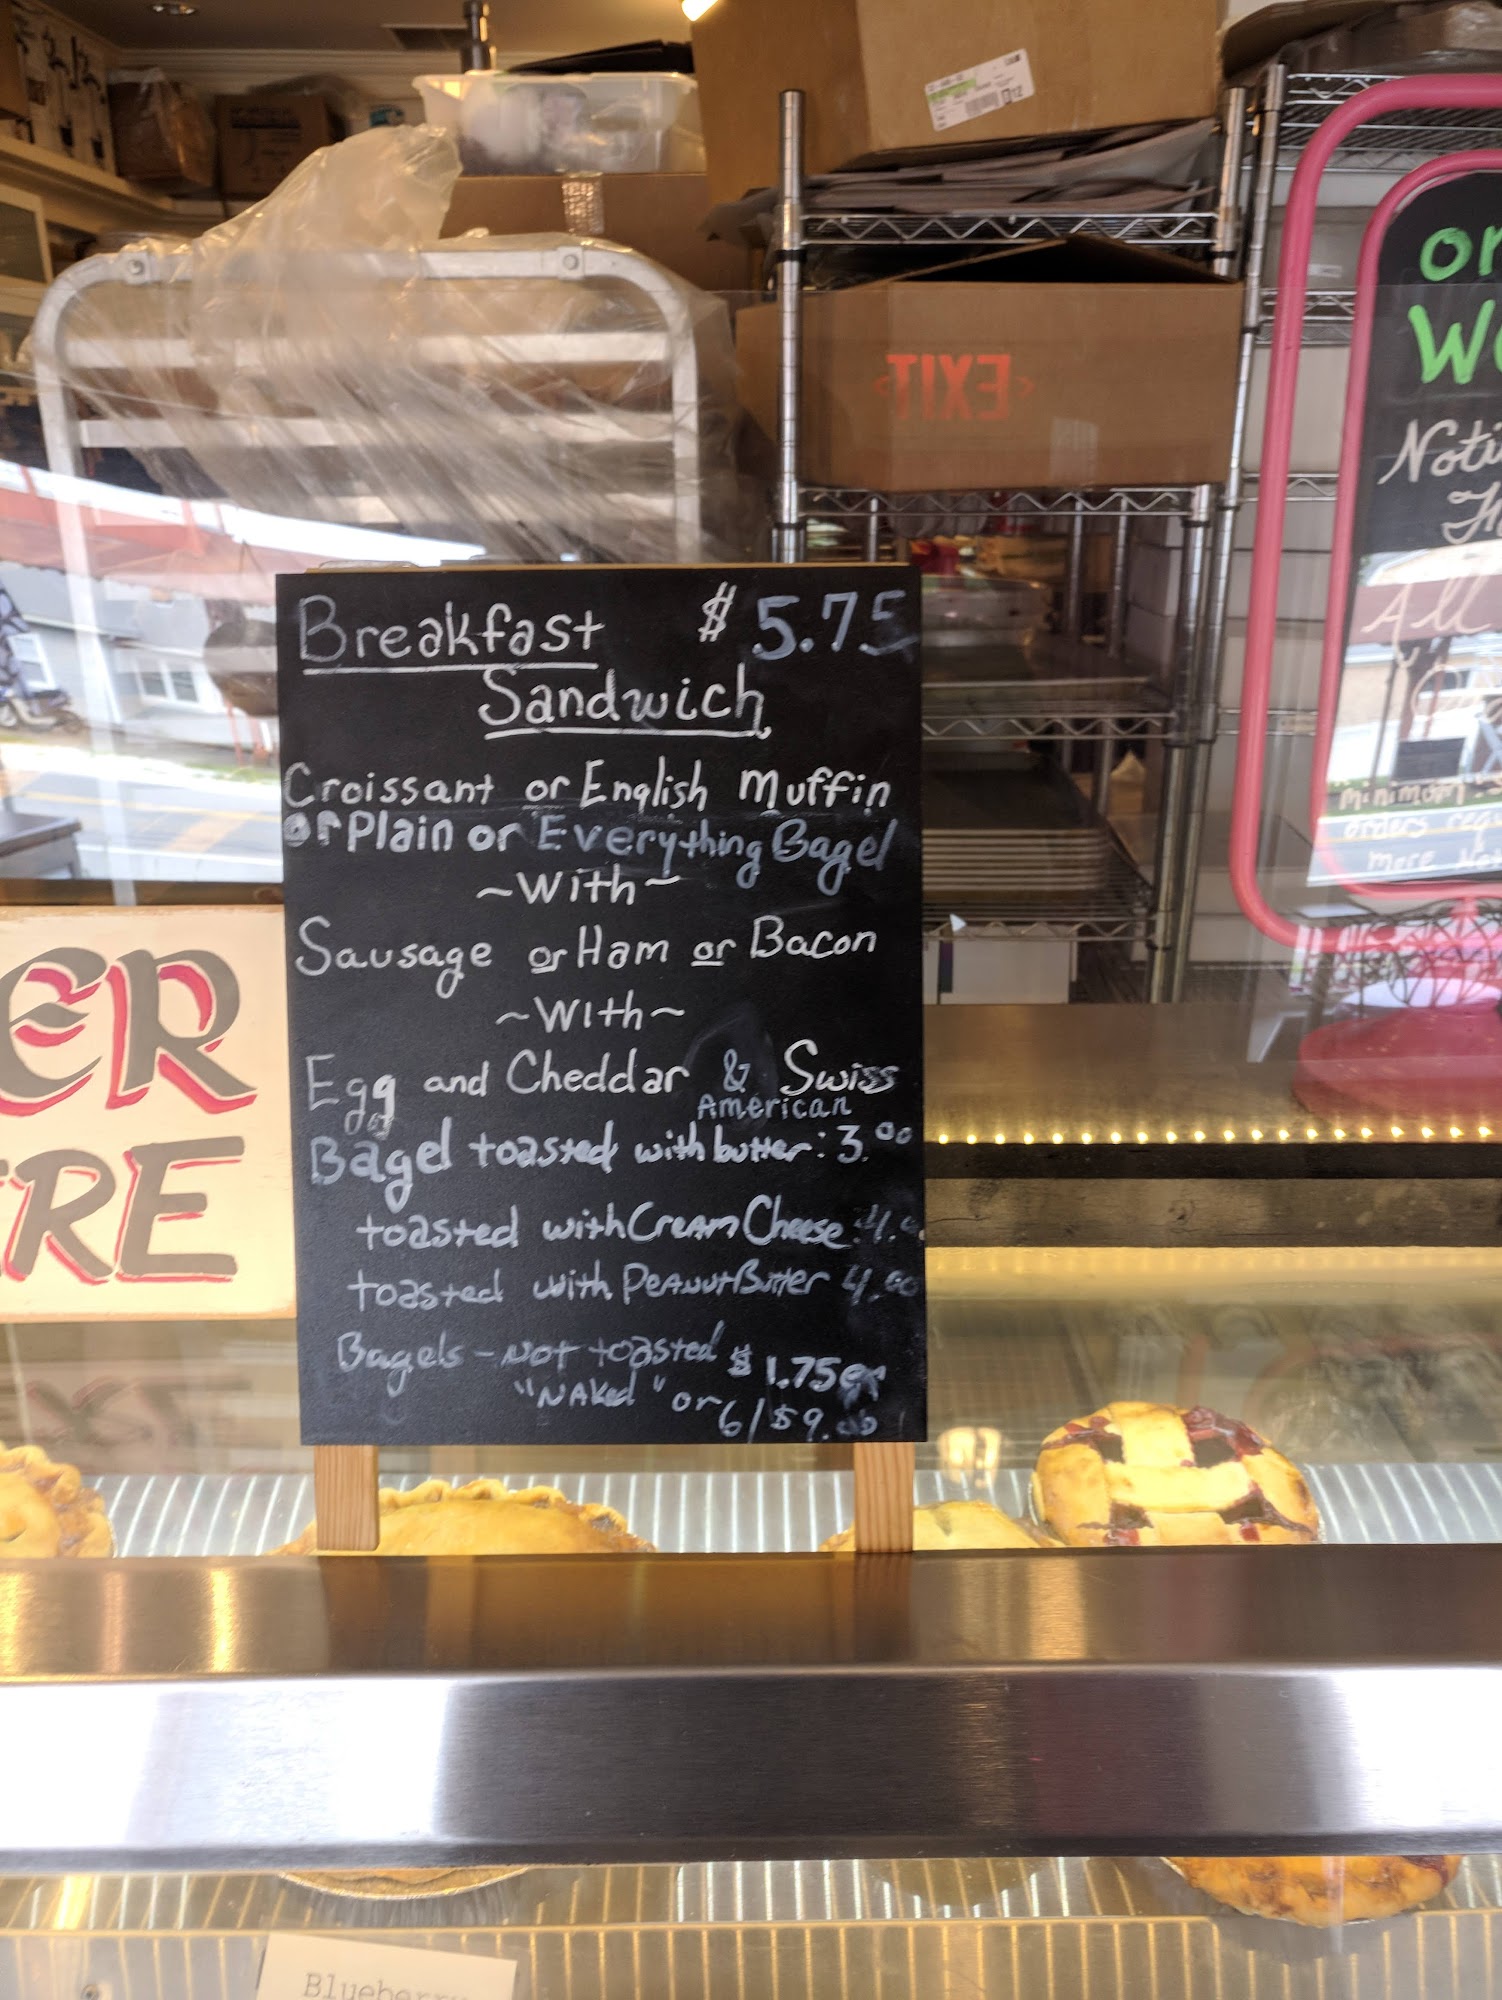 EXIT
or
We
Noti
Th
All
minimum
orders requ
more Not
Breakfast $5.75
Sandwich
Croissant or English Muffin
or Plain or Everything Bagel
~With~
Sausage or Ham or Bacon
~With~
Egg and Cheddar & Swiss
American
Bagel toasted with butter: 3.00
toasted with Cream Cheese: 4.
toasted with Peanut Butter 4.00
Bagels - Not toasted $1.75
"NAKed" or 6/$9.
ER
RE
Blueberry